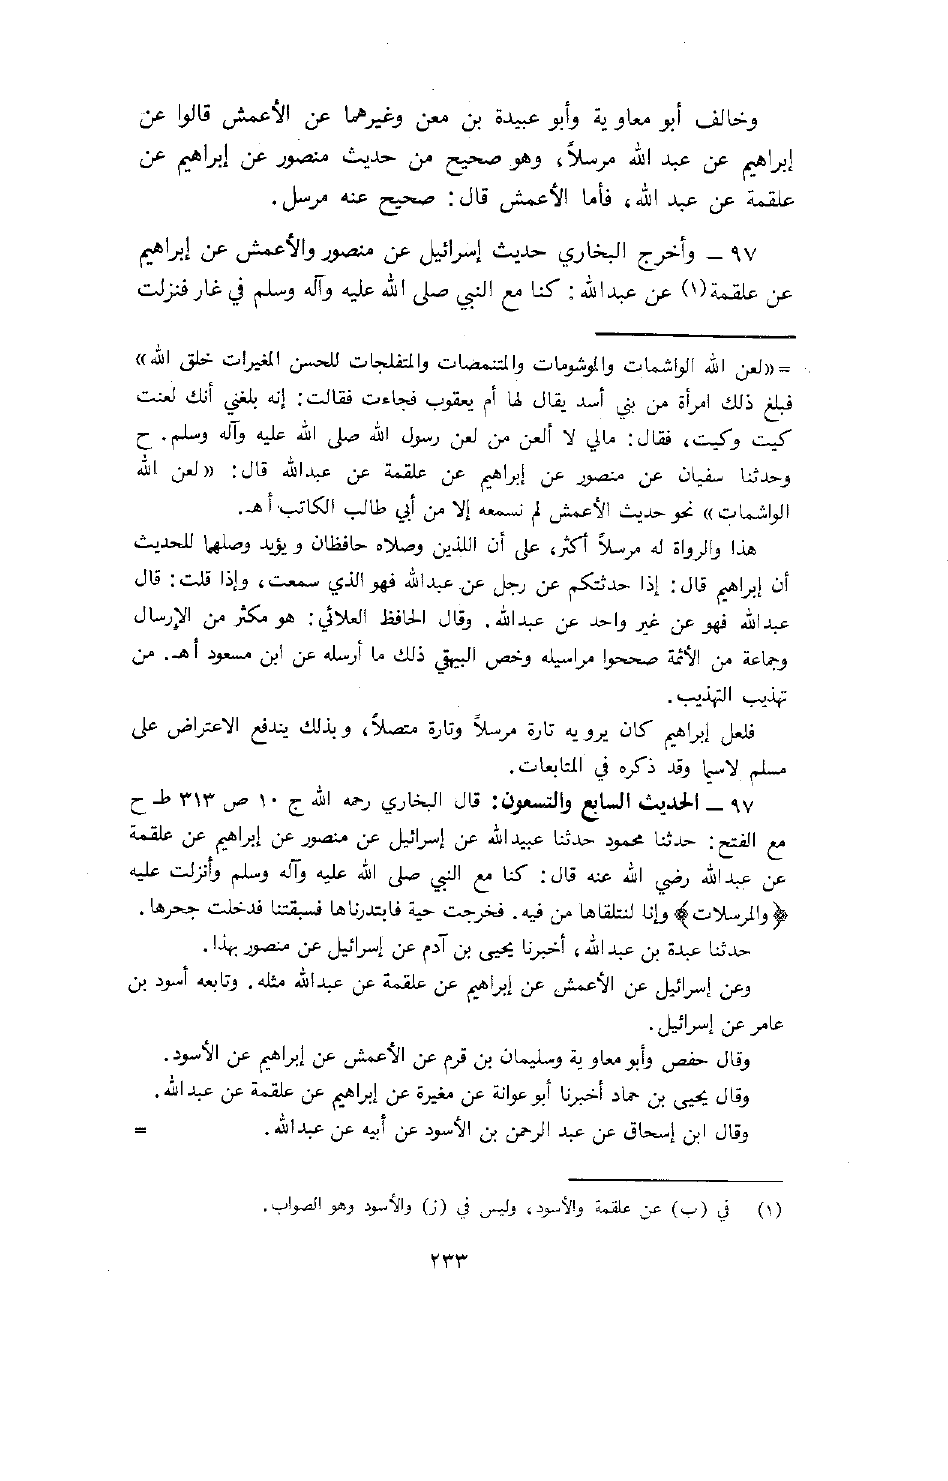 وخالف أبو معاوية وأبو عبيدة بن معن وغيرهما عن الأعمش قالوا عن
إبراهيم عن عبد الله مرسلاً، وهو صحيح من حديث منصور عن إبراهيم عن
علقمة عن عبد الله، فأما الأعمش قال: صحيح عنه مرسل.
٩٧ ــ وأخرج البخاري حديث إسرائيل عن منصور والأعمش عن إبراهيم
عن علقمة(١) عن عبدالله: كنا مع النبي صلى الله عليه وآله وسلم في غار فنزلت
= «لعن الله الواشمات والموشومات والمتنمصات والمتفلجات للحسن المغيرات خلق الله»
فبلغ ذلك امرأة من بني أسد يقال لها أم يعقوب فجاءت فقالت: إنه بلغني أنك لعنت
كيت وكيت، فقال: مالي لا ألعن من لعن رسول الله صلى الله عليه وآله وسلم. ح
وحدثنا سفيان عن منصور عن إبراهيم عن علقمة عن عبدالله قال: «لعن الله
الواشمات» نحو حديث الأعمش لم نسمعه إلا من أبي طالب الكاتب أهـ.
هذا والرواة له مرسلاً أكثر، على أن اللذين وصلاه حافظان ويؤيد وصلهما للحديث
أن إبراهيم قال: إذا حدثتكم عن رجل عن عبدالله فهو الذي سمعت، وإذا قلت: قال
عبدالله فهو عن غير واحد عن عبدالله. وقال الحافظ العلائي: هو مكثر من الإرسال
وجماعة من الأئمة صححوا مراسيله وخص البيهقي ذلك ما أرسله عن ابن مسعود أهـ. من
تهذيب التهذيب.
فلعل إبراهيم كان يرويه تارة مرسلاً وتارة متصلاً، وبذلك يندفع الاعتراض على
مسلم لاسيما وقد ذكره في المتابعات.
٩٧ ــ الحديث السابع والتسعون: قال البخاري رحمه الله ج ١٠ ص ٣١٣ طـ ح
مع الفتح: حدثنا محمود حدثنا عبيدالله عن إسرائيل عن منصور عن إبراهيم عن علقمة
عن عبدالله رضي الله عنه قال: كنا مع النبي صلى الله عليه وآله وسلم وأنزلت عليه
﴿والمرسلات﴾ وإنا لنتلقاها من فيه. فخرجت حية فابتدرناها فسبقتنا فدخلت جحرها.
حدثنا عبدة بن عبدالله، أخبرنا يحيى بن آدم عن إسرائيل عن منصور بهذا.
وعن إسرائيل عن الأعمش عن إبراهيم عن علقمة عن عبدالله مثله. وتابعه أسود بن
عامر عن إسرائيل.
وقال حفص وأبو معاوية وسليمان بن قرم عن الأعمش عن إبراهيم عن الأسود.
وقال يحيى بن حماد أخبرنا أبو عوانة عن مغيرة عن إبراهيم عن علقمة عن عبدالله.
وقال ابن إسحاق عن عبد الرحمن بن الأسود عن أبيه عن عبدالله. =
(١) في (ب) عن علقمة والأسود، وليس في (ز) والأسود وهو الصواب.
٢٣٣